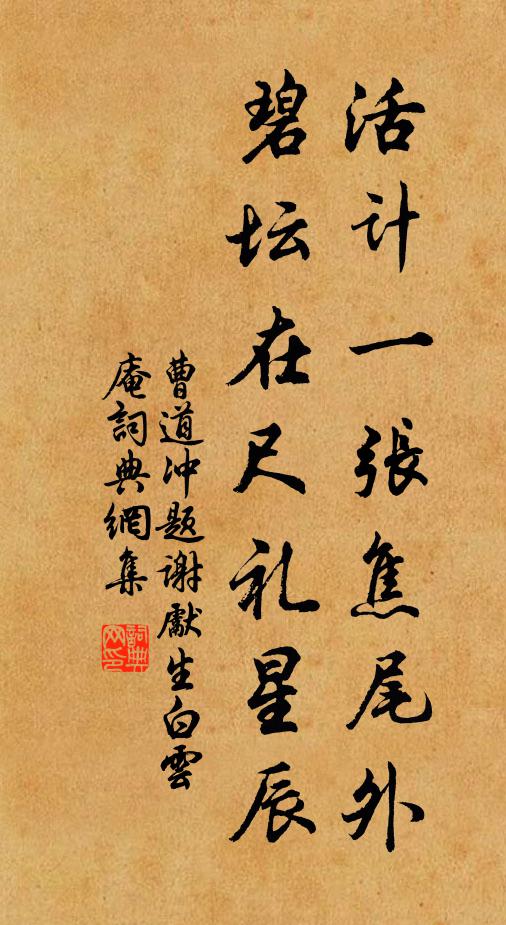 活计一張焦尾外
碧坛在尺礼星辰
曹道冲题谢獻生白雲
庵詞典網集
詞典
网印